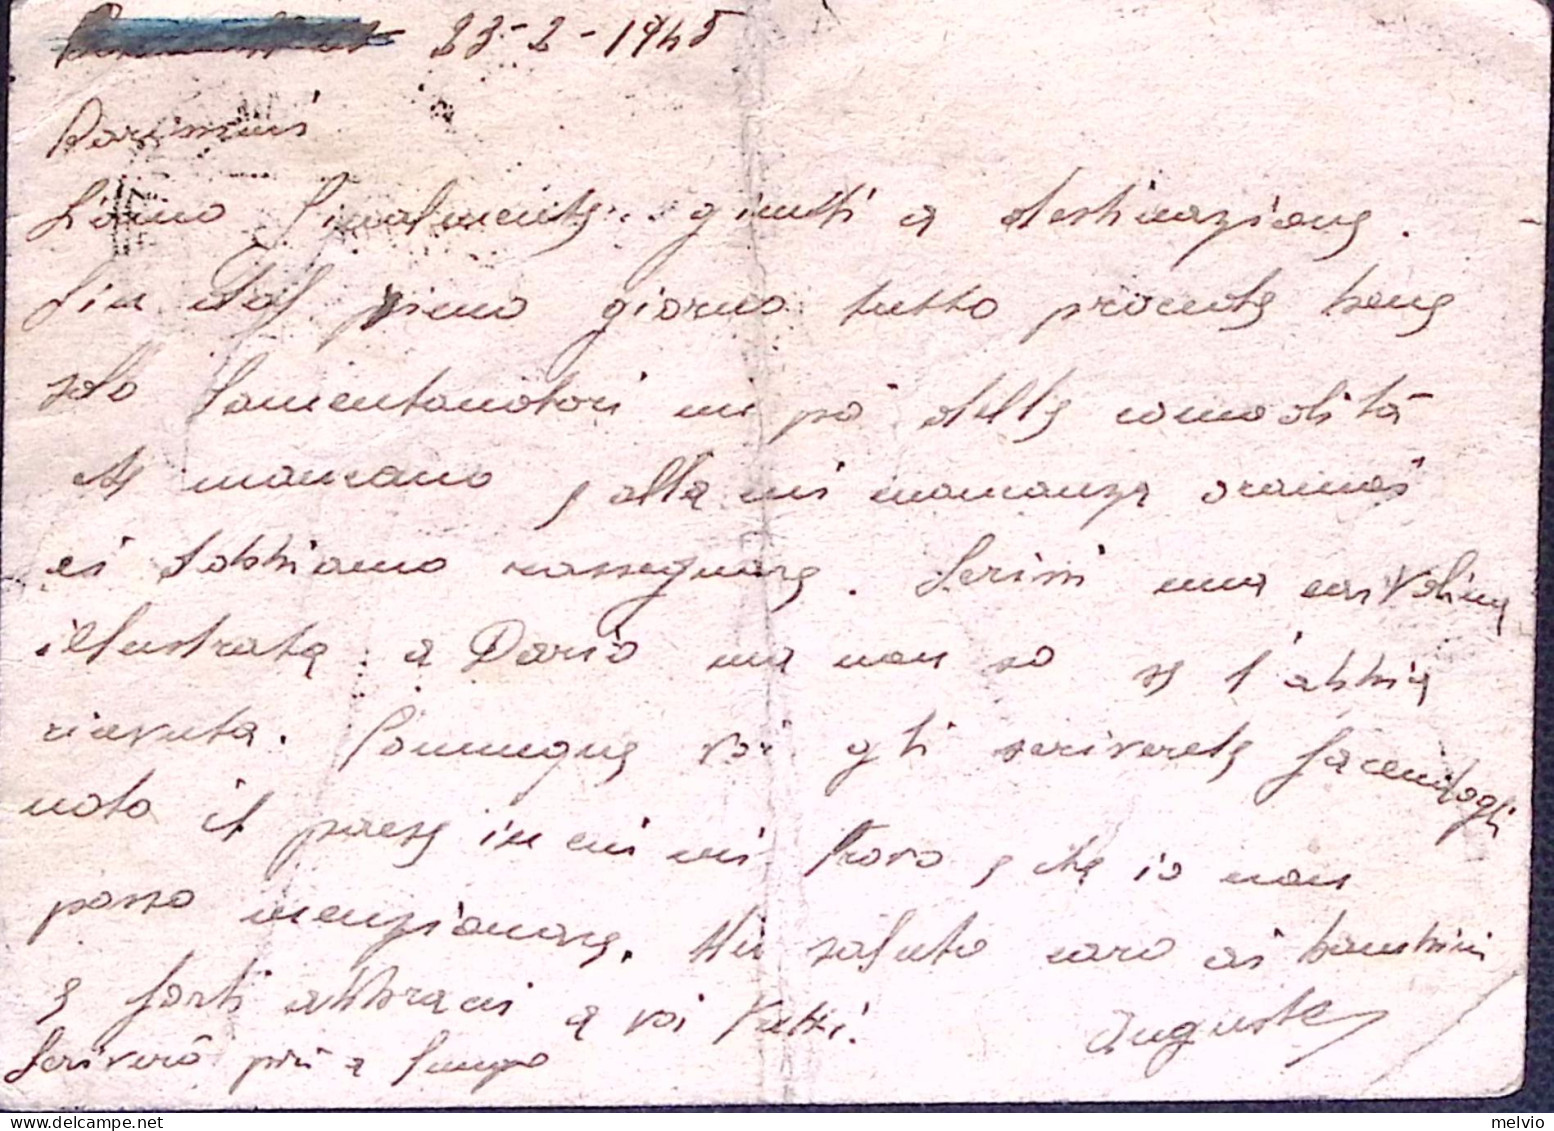 23-2-1945
Carissimi
Siamo finalmente giunti a destinazione.
Sin dal primo giorno tutto procede bene
solo lamentandoci un pò delle comodità
che mancano, alla cui mancanza oramai
ci dobbiamo rassegnare. Scrissi una cartolina
illustrata a Dario ma non so se l'abbia
ricevuta. Comunque voi gli scriverete facendogli
noto il paese in cui mi trovo, che io non
posso menzionare. Un saluto caro ai bambini
e forti abbracci a voi tutti!
Augusto
Scriverò più a lungo
melvio